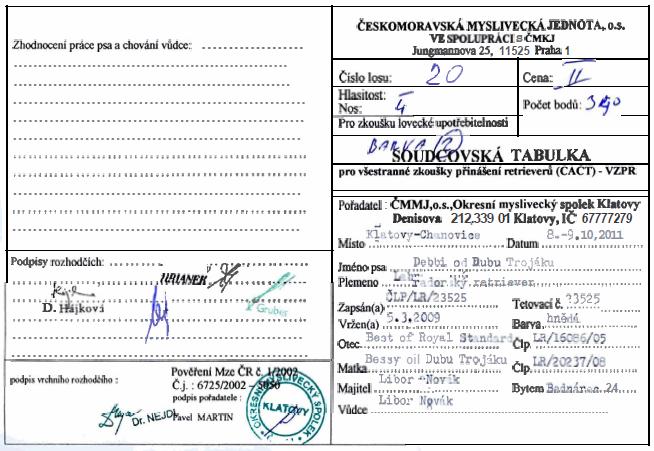 Zhodnocení práce psa a chování vůdce:
Podpisy rozhodčích:
URBANEK
D. Hájková
Gruber
Pověření Mze ČR č. 1/2002
Č.j. : 6725/2002 – 5030
podpis vrchního rozhodčího :
podpis pořadatele :
Dr. NEJDL
Pavel MARTIN
OKRESNÍ MYSLIVECKÝ SPOLEK
KLATOVY
ČESKOMORAVSKÁ MYSLIVECKÁ JEDNOTA, o.s.
VE SPOLUPRÁCI S ČMKJ
Jungmannova 25, 11525 Praha 1
Číslo losu: 20
Cena: II
Hlasitost: –
Nos: 4
Počet bodů: 340
Pro zkoušku lovecké upotřebitelnosti
BARVA (2)
SOUDCOVSKÁ TABULKA
pro všestranné zkoušky přinášení retrieverů (CACT) - VZPR
Pořadatel : ČMMJ,o.s.,Okresní myslivecký spolek Klatovy
Denisova 212,339 01 Klatovy, IČ 67777279
Místo Klatovy-Chanovice Datum 8.-9.10.2011
Jméno psa Debbi od Dubu Trojáku
Plemeno Labradorský retriever
Zapsán(a) ČLP/LR/23525 Tetovací č. 23525
Vržen(a) 5.3.2009 Barva hnědá
Otec Best of Royal Standard Člp. LR/16086/05
Matka Bessy od Dubu Trojáku Člp. LR/20237/08
Majitel Libor Novák Bytem 24
Vůdce Libor Novák